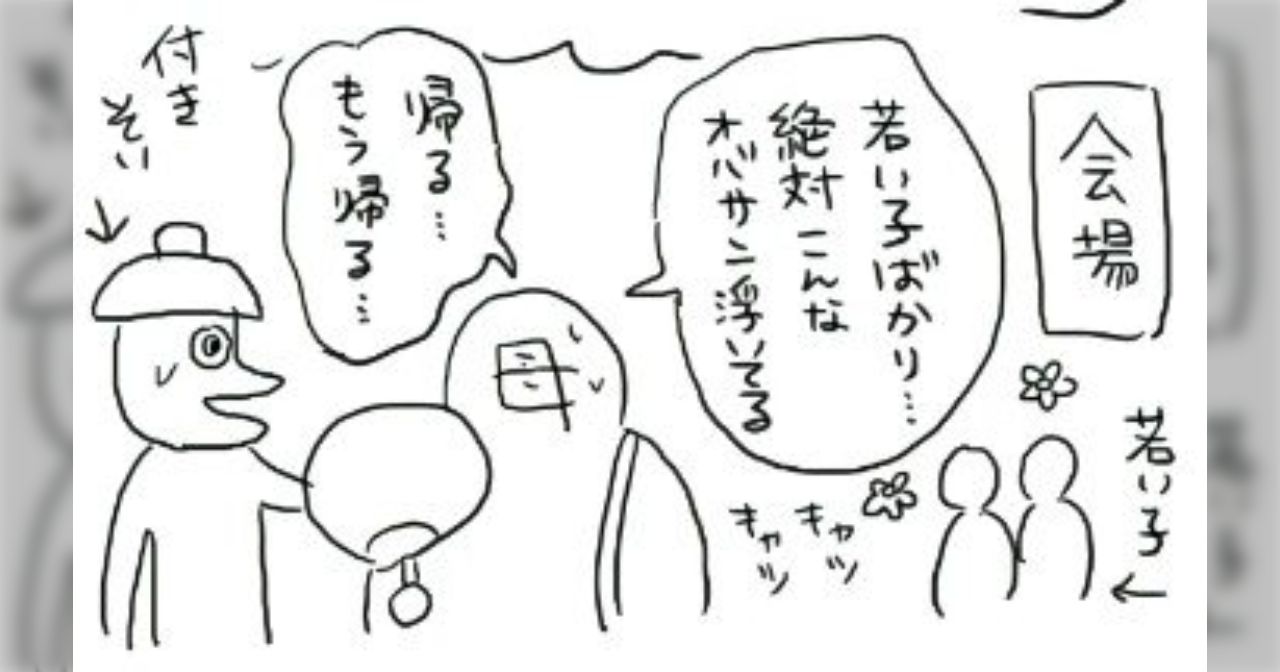 会場
若い子ばかり…
絶対こんな
オバサン浮いてる
若い子
キャッ
キャッ
帰る…
もう帰る…
母
付き
そい